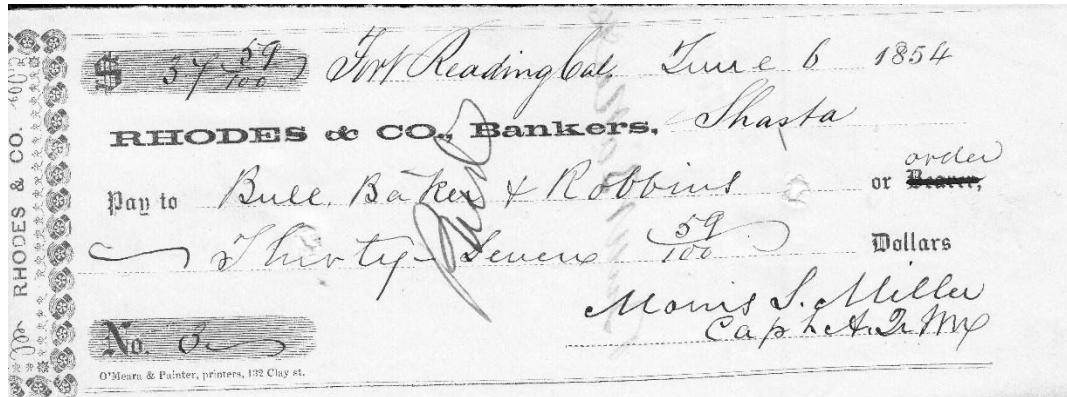 $ 37 59/100 Fort Reading Cal. June 6 1854
RHODES & CO., Bankers, Shasta
order
Pay to Bull, Baker & Robbins or Bearer,
Thirty Seven 59/100 Dollars
Morris S. Miller
Capt. A. Q. M.
No.
O'Meara & Painter, printers, 132 Clay st.
RHODES & CO.